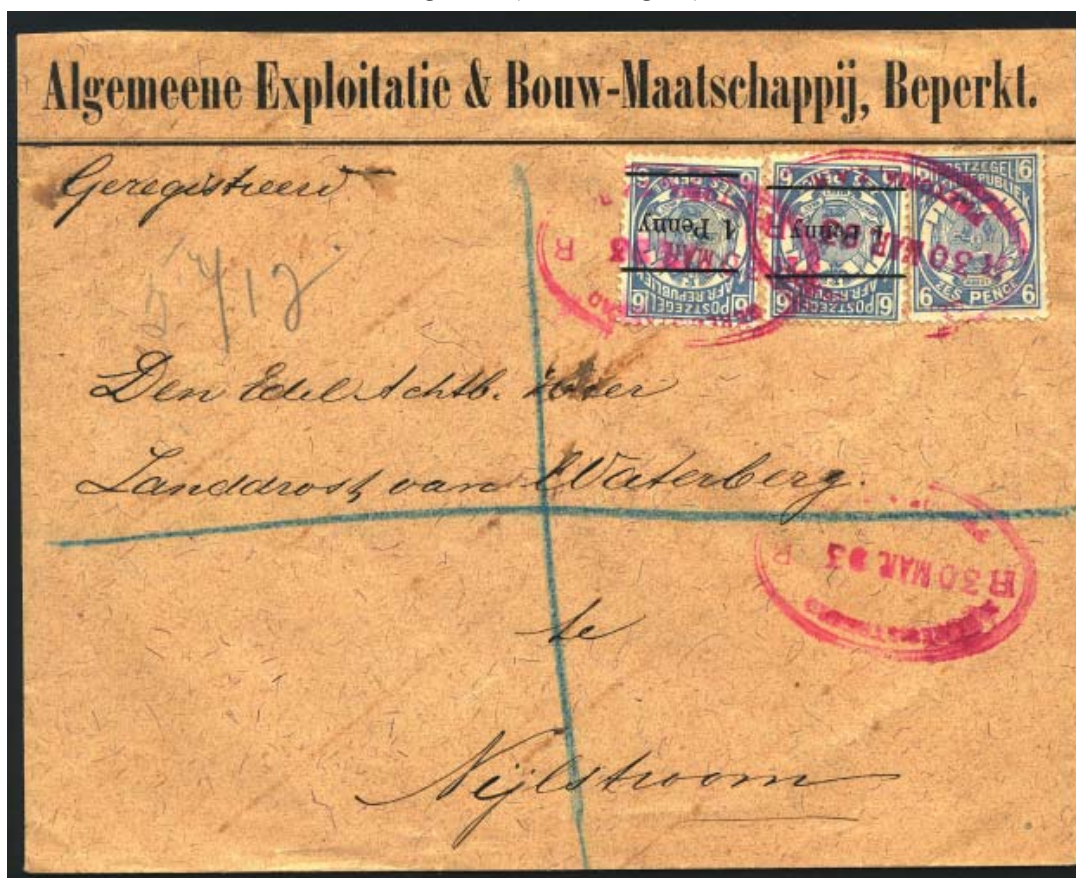 Algemeene Exploitatie & Bouw-Maatschappij, Beperkt.
Geregistreerd
POSTZEGEL
AFR.REPUBLIEK
6 6
ZES PENCE
1 Penny
POSTZEGEL
AFR.REPUBLIEK
6 6
1 Penny
POSTZEGEL
6 6
ZES PENCE
R 30 MAR 93
Den Edel Achtb. Heer
Landdrost van Waterberg.
R 30 MAR 93 R
te
Nijlstroom